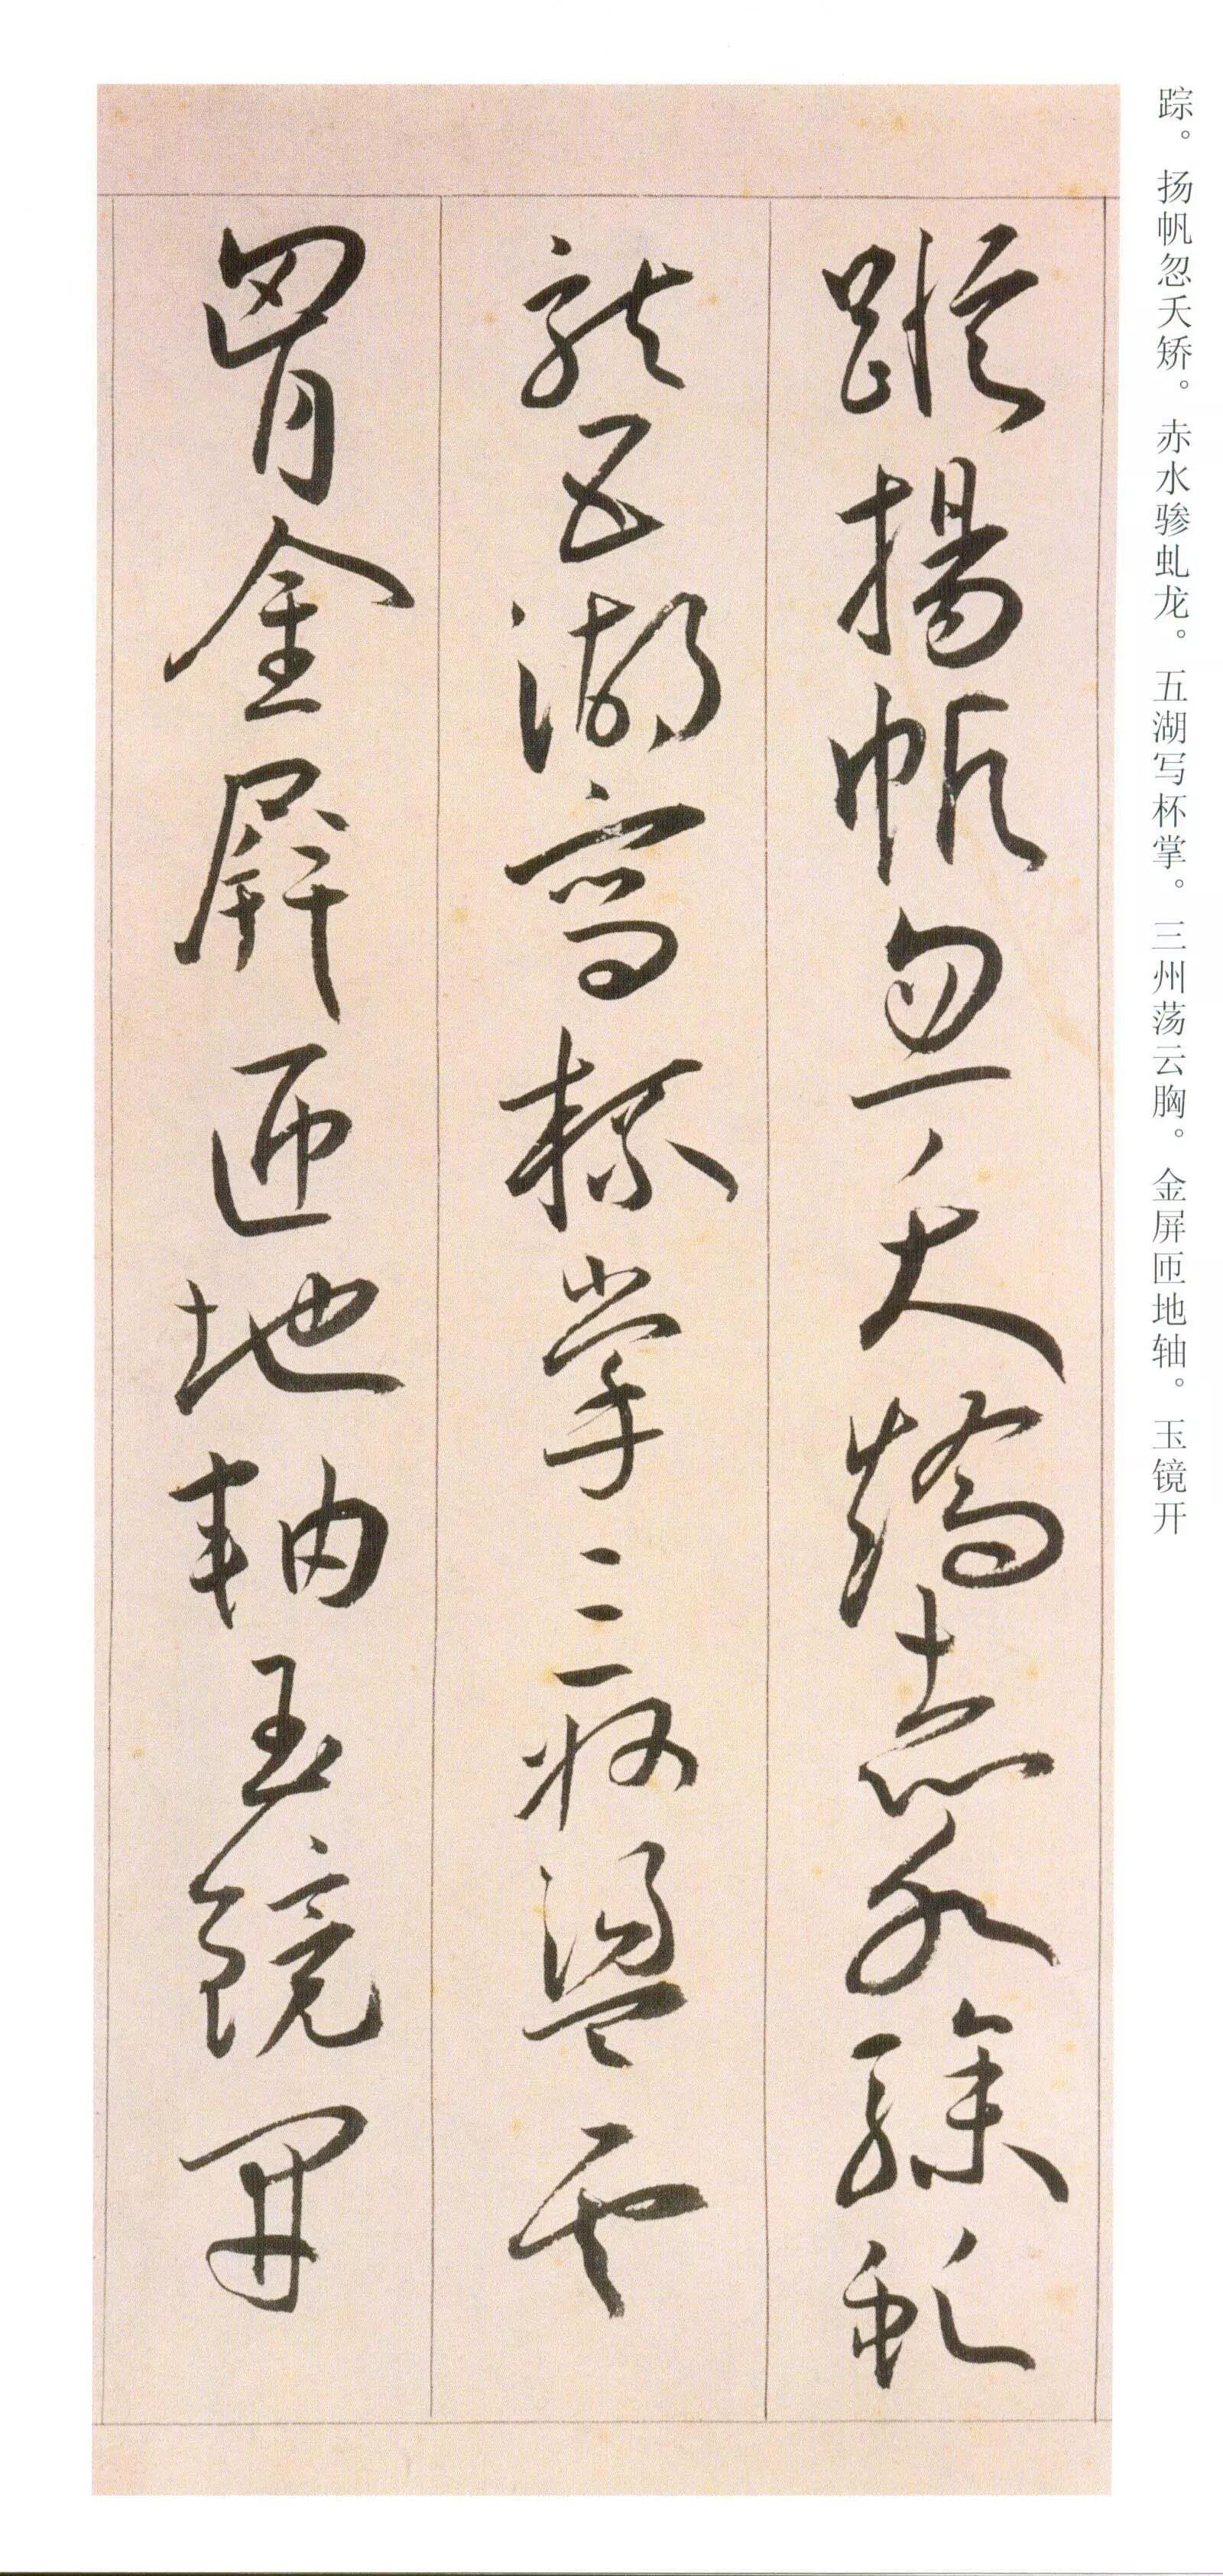 踪。扬帆忽夭矫。赤水骖虬龙。五湖写杯掌。三州荡云胸。金屏匝地轴。玉镜开
蹤揚帆忽夭矯赤水驂虬
龍五湖寫杯掌三州盪雲
胷金屏匝地軸玉鏡開